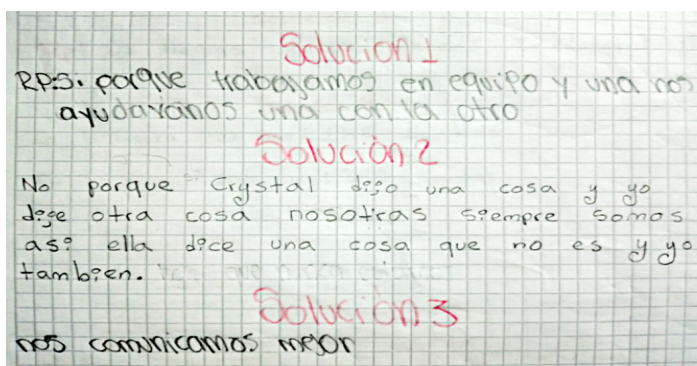 Solucion 1
RP:S. porque trabajamos en equipo y una nos
ayudavanos una con la otro
Solución 2
No porque Crystal dijo una cosa y yo
dije otra cosa nosotras siempre somos
asi ella dice una cosa que no es y yo
tambien.
Solución 3
nos comunicamos mejor